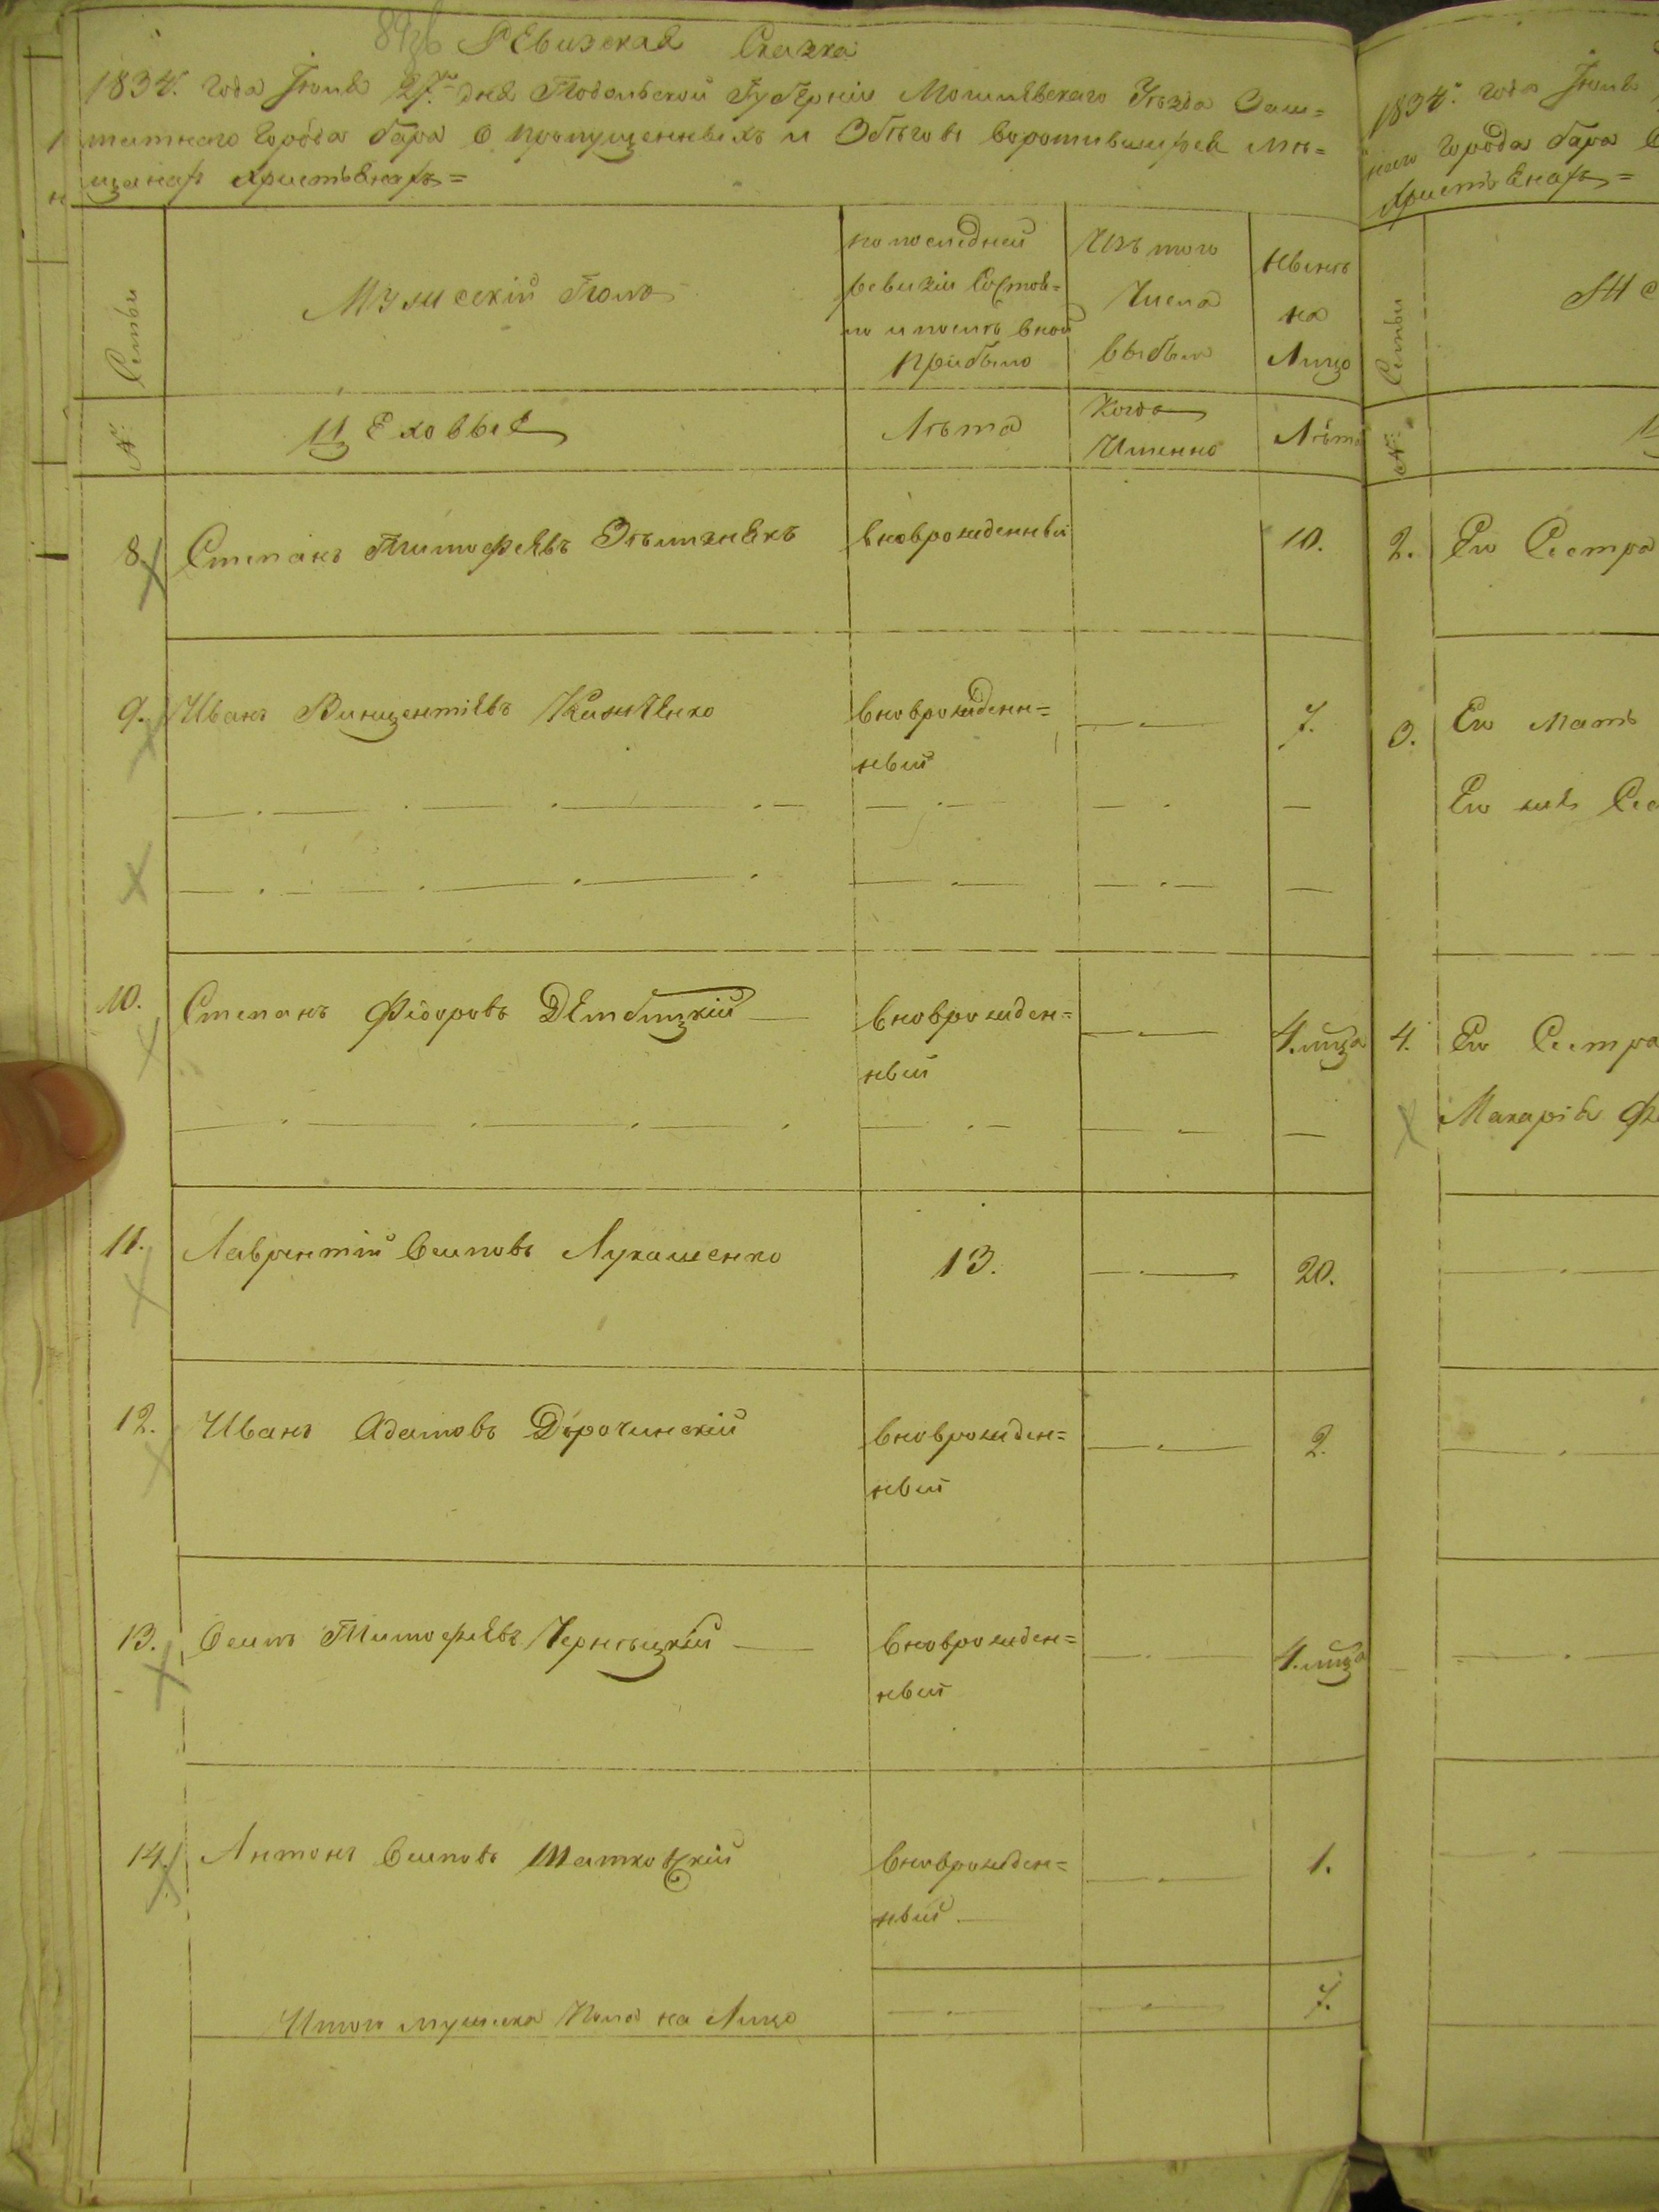 Ревизская Сказка
1834. года Іюня 27. дня Подольской Губерніи Могилѣвскаго Уѣзда Заш=
татнаго города бара О пропущенныхъ и Збѣговъ воротившихся мѣ=
щанах христіянахъ=
Семьи
Мужескій Полъ
по последней
ревизіи Состоя=
ло и послѣ вной
прибыло
Изъ того
Числа
выбыло
нынѣ
на
Лицо
№:
Цеховые
Лѣта
Когда
Именно
Лѣта
8. Степанъ Тимофеявъ вноврожденный 10.
9. Иванъ Винцентіявъ вноврожденн= 7.
ный
10. Степанъ Фіодоровъ Дембицкій вноврожден= 4. мца
ный
11. Лаврентій Осиповъ Лукашенко 13. 20.
12. Иванъ Адамовъ Дорочинскій вноврожден= 2.
ный
13. Осипъ Тимофеявъ Чернѣцкій вноврожден= 4. мца
ный
14. Антонъ Осиповъ Шатковскій вноврожден= 1.
ный
Итого мужеска Пола на Лицо 7.
1834. года Іюня
наго города бара
христіянахъ=
Семьи
№:
2. Его Сестра
3. Его мать
Его же Сес
4. Его Сестра
Макарія